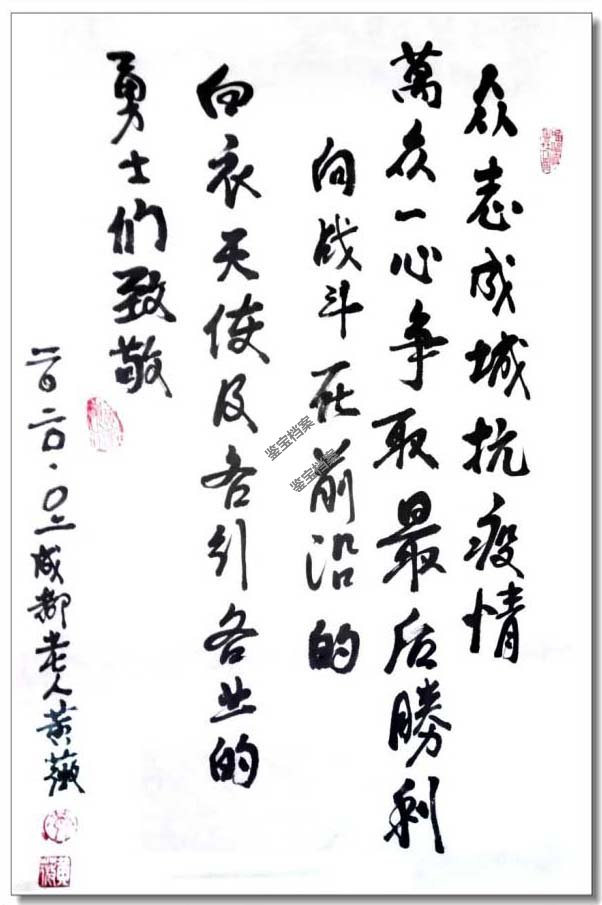 众志成城抗疫情
萬众一心争取最后勝利
向战斗在前沿的
白衣天使及各行各业的
勇士们致敬
二〇二〇.〇二成都老人黄薇
鉴宝档案
鉴宝档案